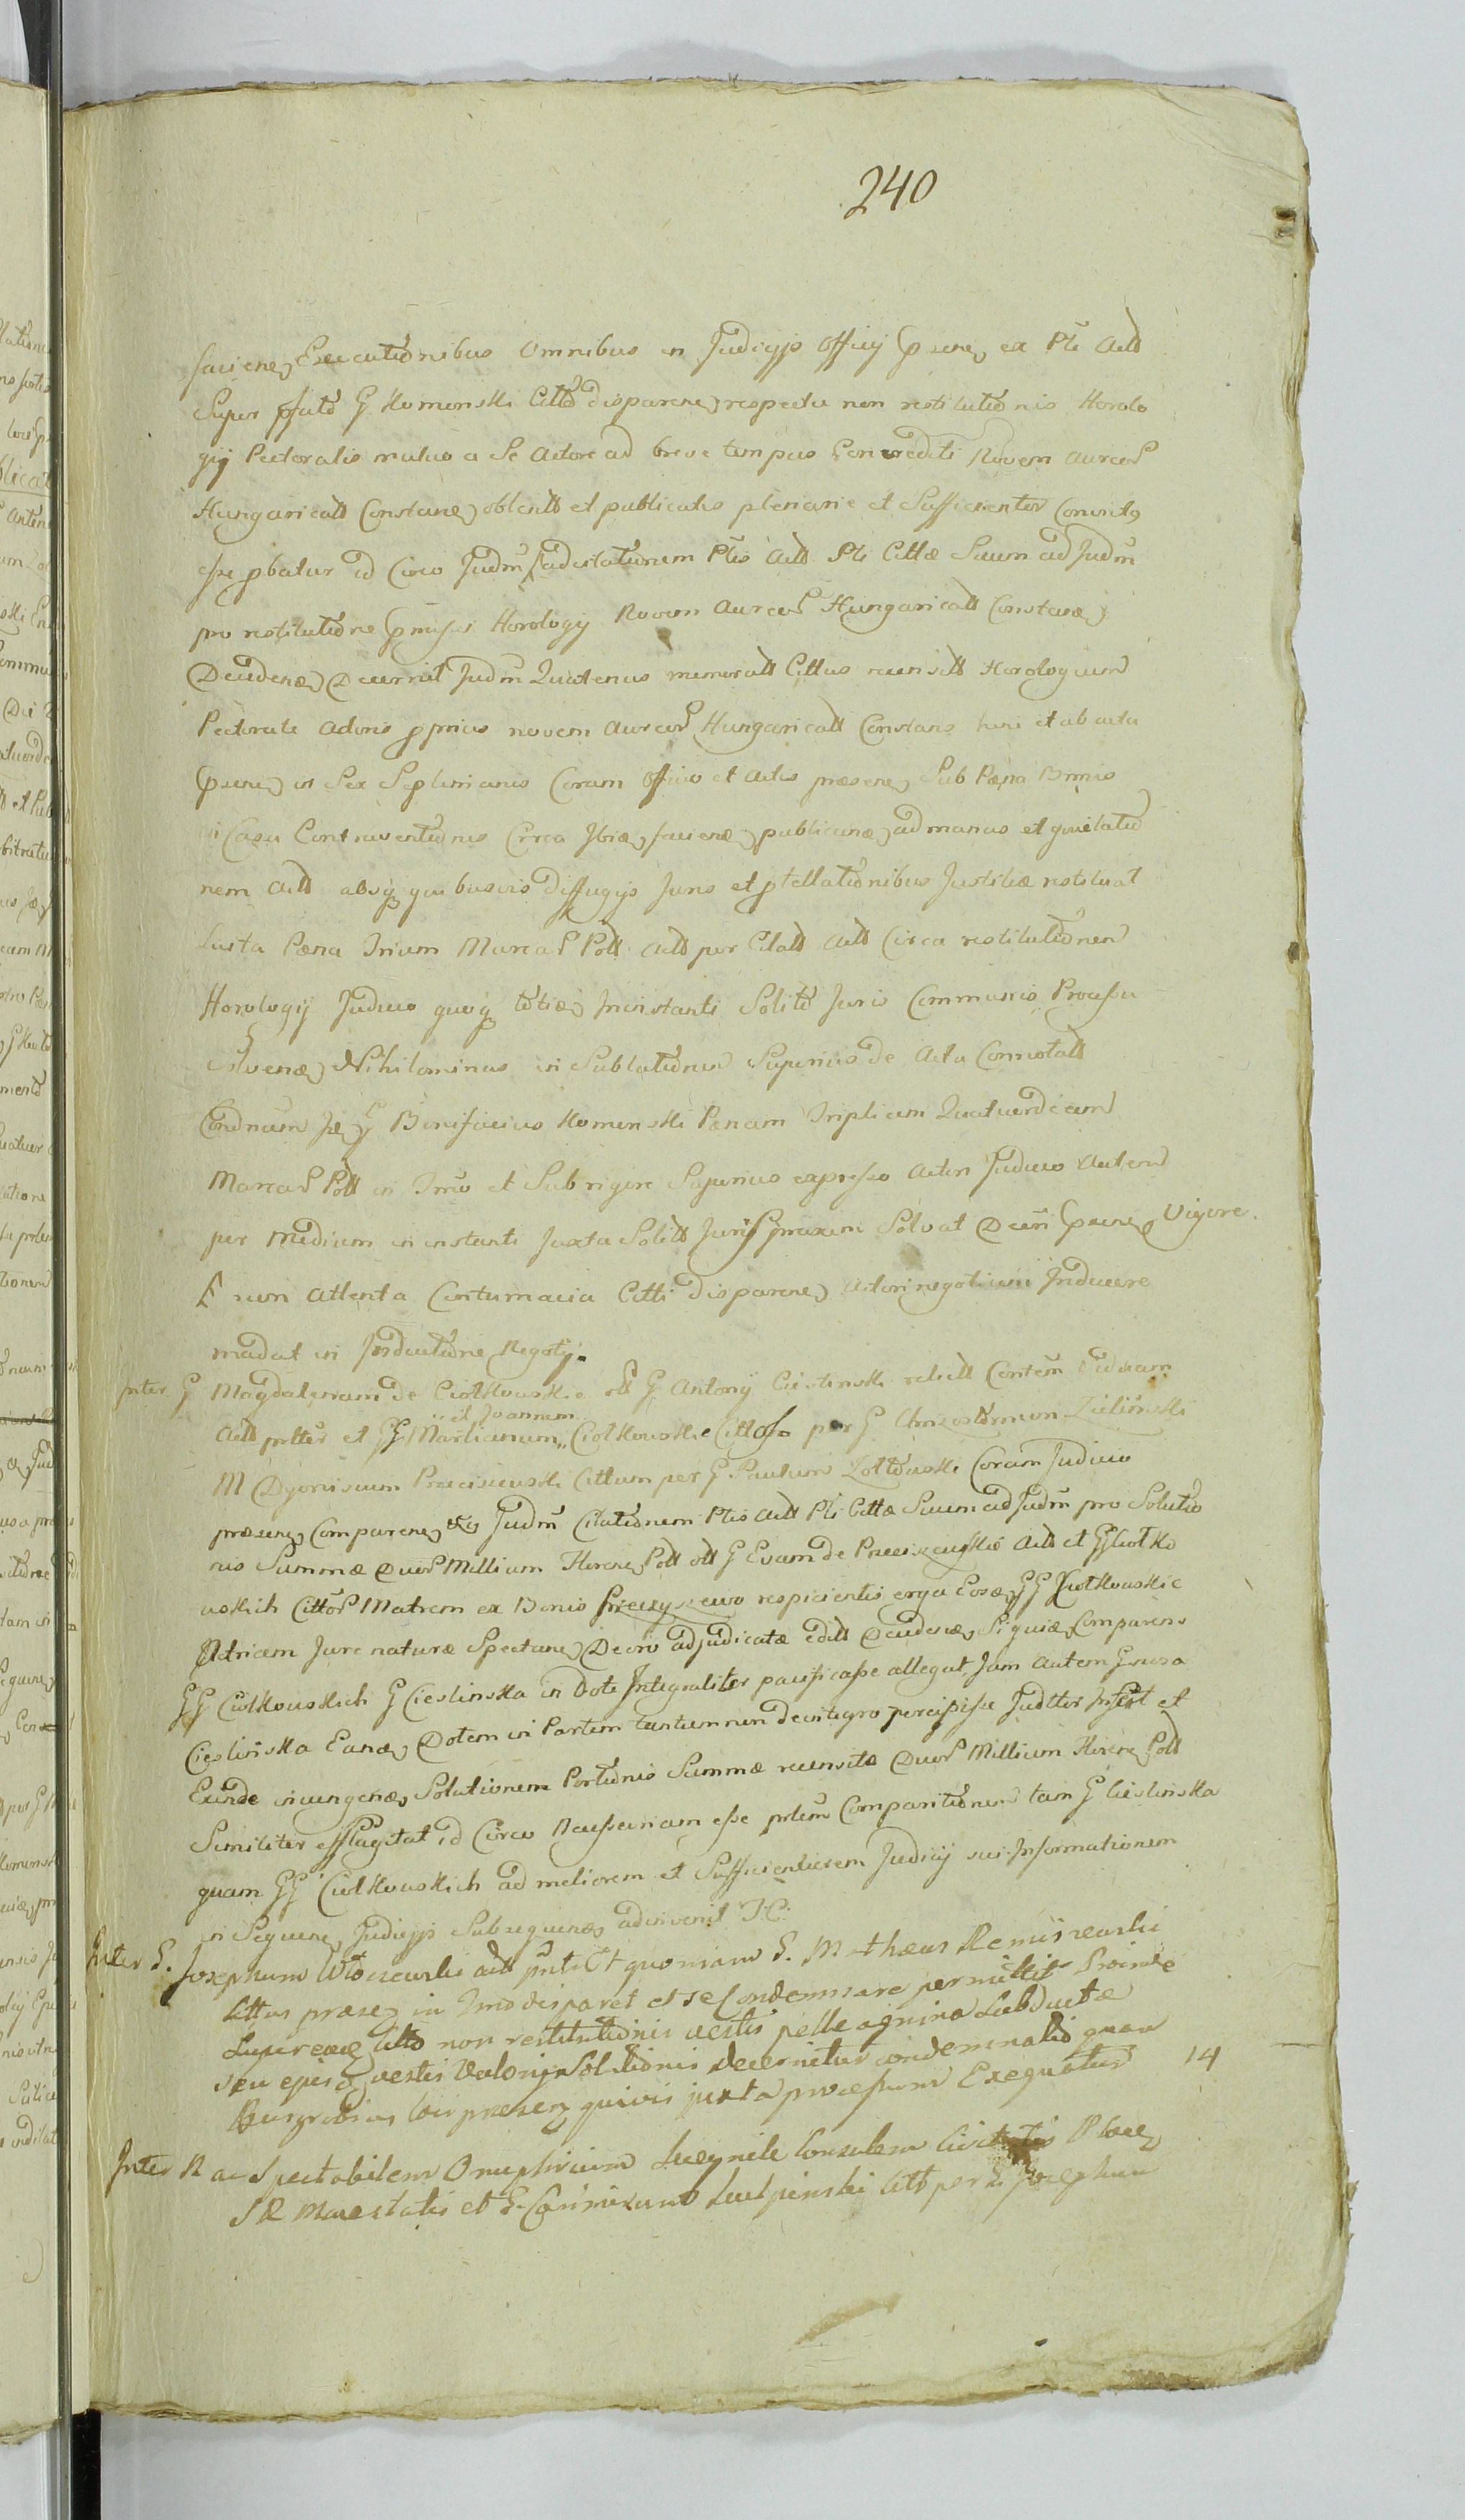 240
facienę Executionibus omnibus in Judicys officij pnsenę ex Pti Actt
Super G Komenski Citto disparenę respectu non restitutionis Horolo
gij Pectoralis mutuo a Se Actore ad breve tempus Concrediti Novem aureos
Hungaricatt Constanę obtentt et publicatis plenarie et Sufficienter
esse pbatur id Circo Judm citationem Ptis Actt Pti Cittæ Suum ad Judm
pro restitutione pmissi Horologij Novem Aureos Hungaricatt Constanę
Decidenę Decernit Judm Quatenus memoratt Cittus recensitt Horologium
Pectorale Actoris pprius novem Aureos Hungaricatt Constans et ab actu
pnsenę in Sex Septimanis Coram officio et Actis præsenę Sub Pæna Bannis
in Casu Contraventionis Circa facienę publicanę ad manus et
nem Actt absq quibusvis Diffugijs Juris et Justitiæ restituat
Luita Pæna Trium Marcas Pott Actt per Citatt Actt Circa restitutionem
Horologij Judicio quoq totiæ Ininstanti Solito Juris Communis Processu
Solvenæ Nihilominus in Sublationem Superius de Actu Connotatt
Condnaum G Bonifacius Komenski Pænam Triplicem Quatuordecem
Marcas Pott in Tmo et Sub rigore Superius expresso Actori Judicio Autem
per Medium in instanti Juxta Solitt Juris praxim Solvat Decri pnsenę Vigore.
E reon Attenta Contumacia Citti disparenę Actori negotium Inducere
madat in Inductione Negotij.
Inter G Magdalenam de Ciolkowskie olt G Antonij Cieslinski relictt Contem Viduam
Actt et GG Martianum „et Joannem„ Ciolkowskie Cittos per G Chrizostomum Zielinski
M Dyonisium Przeciszewski Cittum per G Paulum Zoltowski Coram Judicio
præsenę Comparenę Judm Citationem Ptis Actt Pti Cittæ Suum ad Judm pro Solutio
nis Summæ Duor Millium Florenę Pott olt G Evam de Przeciszewskie Actt et GG Ciolko
wskich Cittor Matrem ex Bonis respicientis erga Eosæ GG Ciolkowskie
Patriam Jure naturæ Spectanę Decris adjudicatæ Decidenæ, Siquiæ, Comparens
GG Ciolkowskich G Cieslinska in Dote Integraliter pacificasse allegat Jam autem Gnsrosa
Cieslinska Eanæ, Dotem in Partem tantum non de integro percipisse Judtter Infert et
Exinde Solutionem Portionis Summæ recensitæ Duor Millium Florenę Pott
Similiter efflagitat id Circo Necessariam esse Comparitionem tam G Cieslinska
quam GG Ciolkowskich ad meliorem et Sufficientiorem Judicij sui Informationem
in Sequenę Judicijs Subsequenæ adinvenit
Inter S. Josephum Wloszewski Actt Et quoniam S. Mathæus Remiszewski
Cittus præsez in Tmo disparet et se Condemnare permittit Proinde
Super non restitutionis vestis pelle agnina Subductæ
seu ejusq vestis Valoris Solutionis decernitur condemnatio quam
Burgrabius loci præsez quivis juxta processum Exequatur
14
Inter N ac Spectabilem Onuphrium Consulem Civitatis
SR Maiestatis et S. Casimirum Citt per S. Josephum